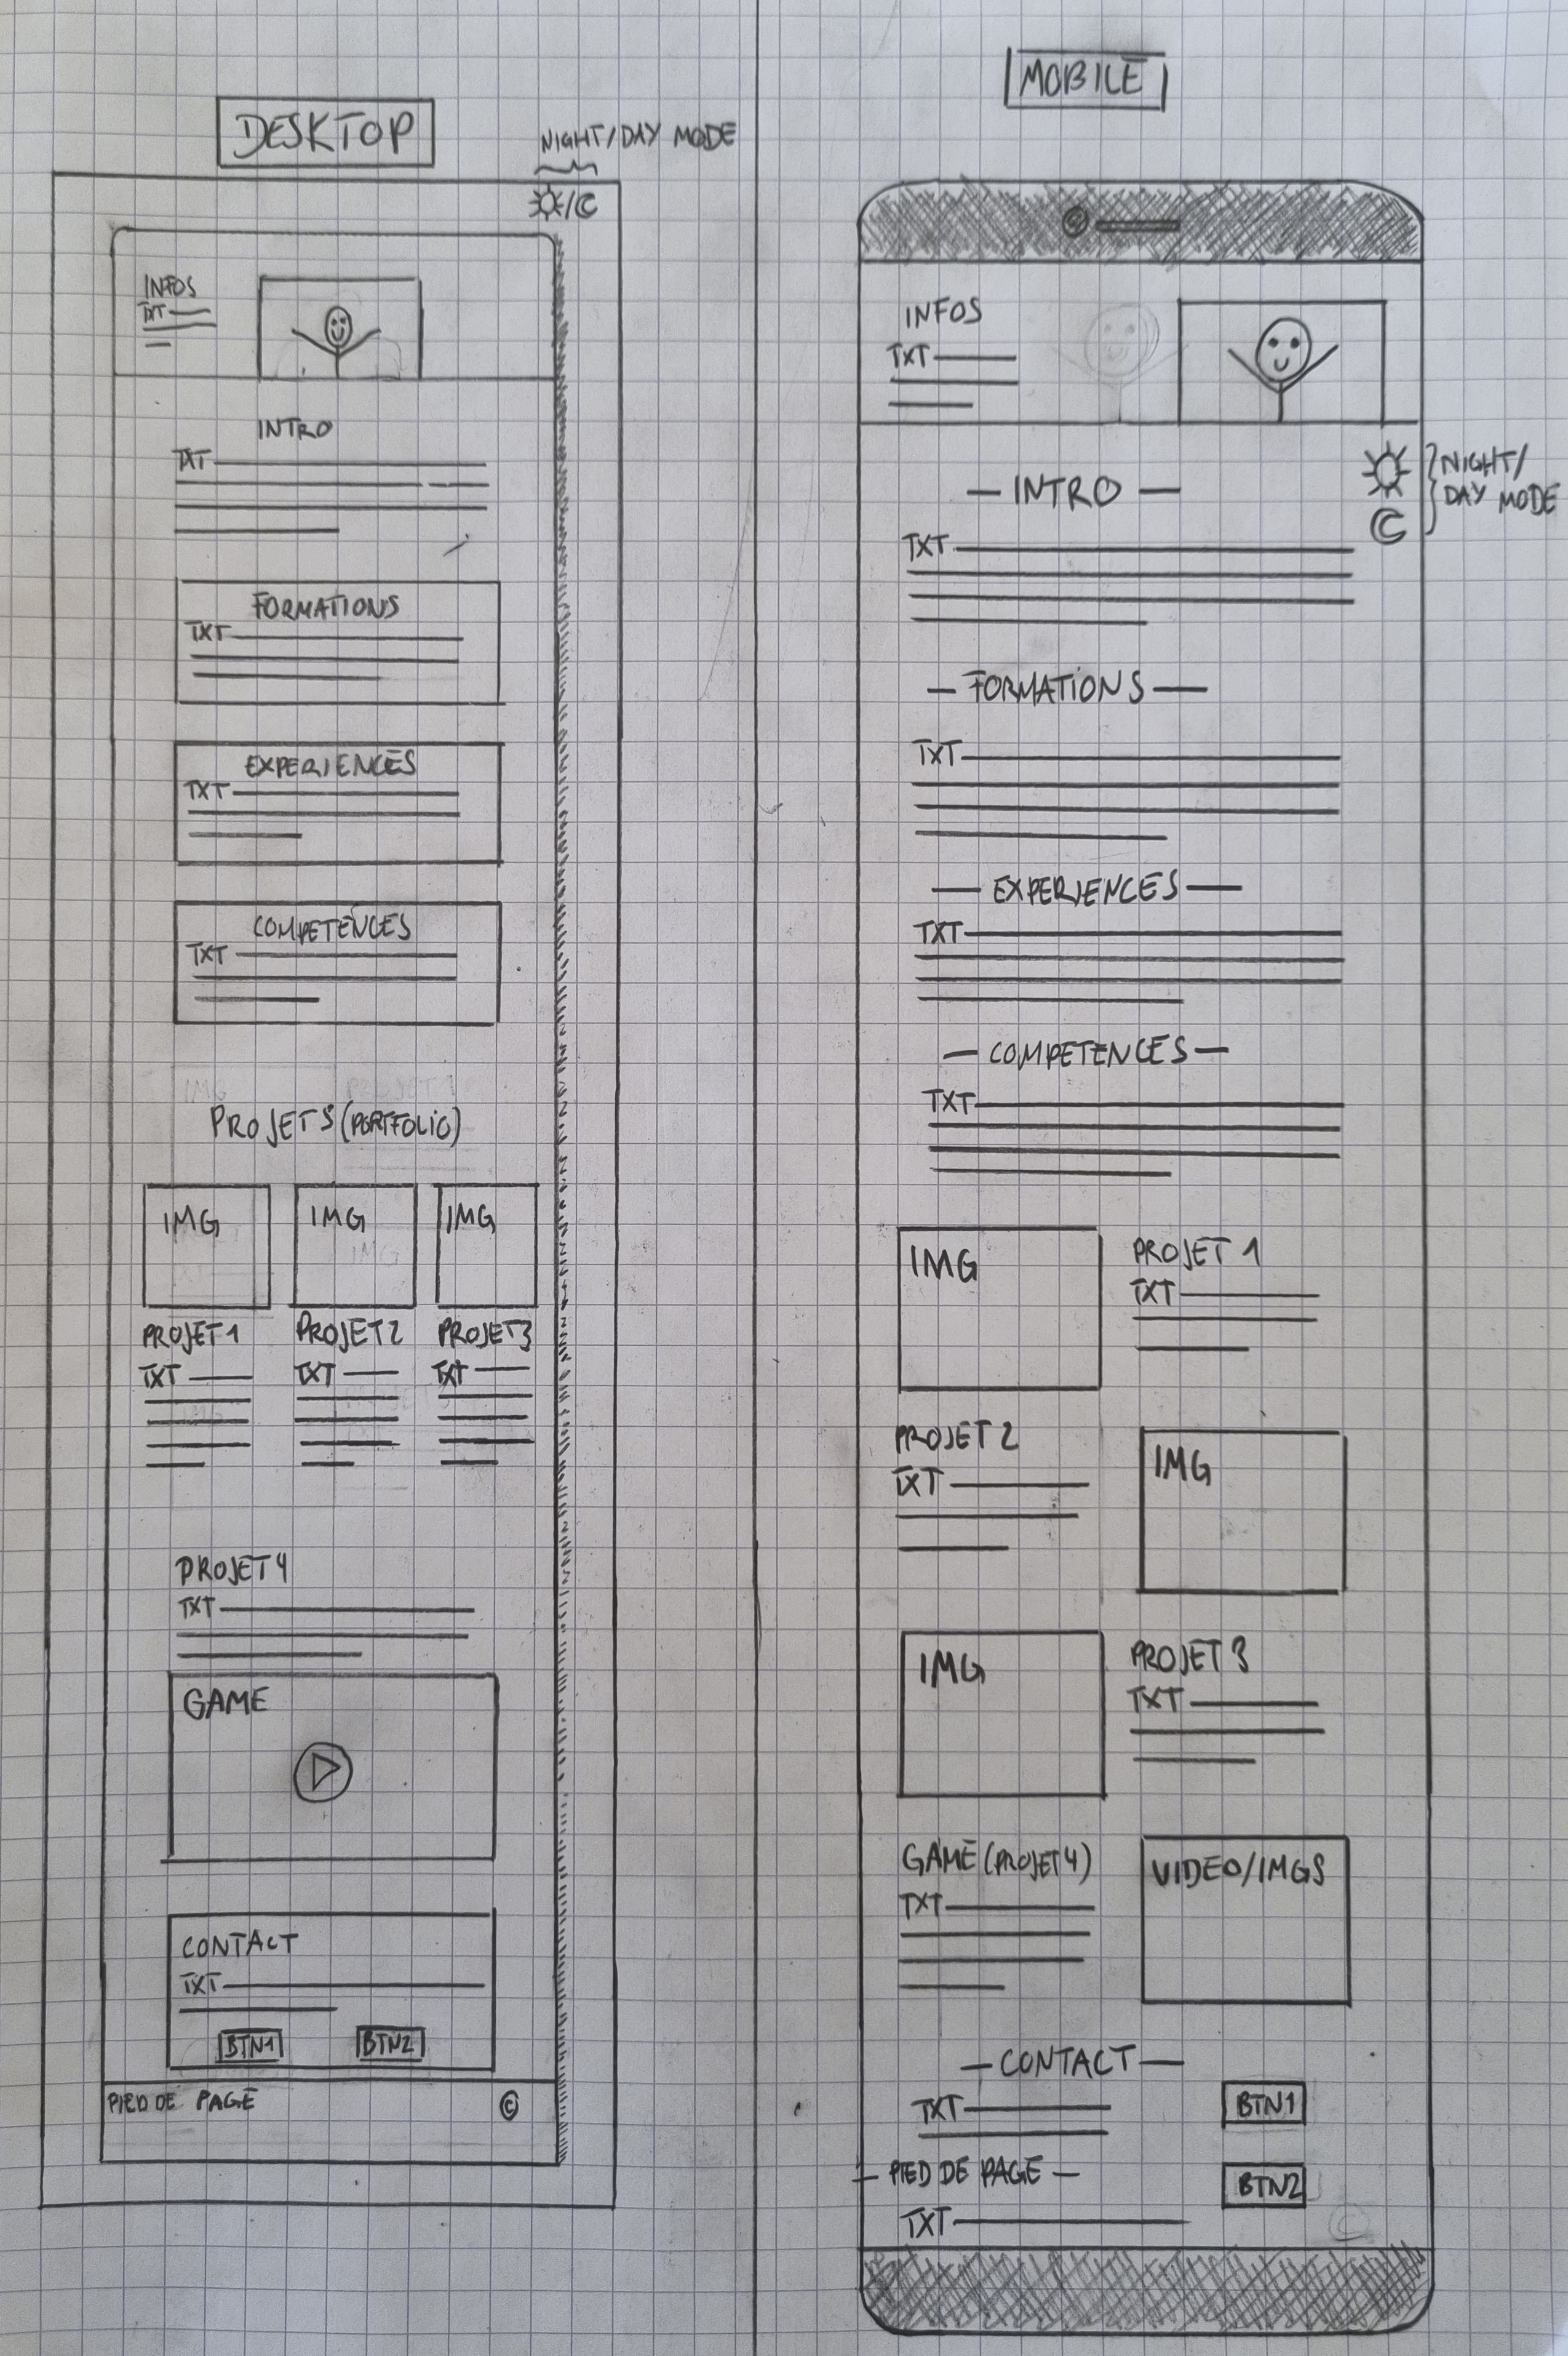 DESKTOP
NIGHT/DAY MODE
INFOS
TXT
INTRO
TXT
FORMATIONS
TXT
EXPERIENCES
TXT
COMPETENCES
TXT
PROJETS (PORTFOLIO)
IMG IMG IMG
PROJET 1 PROJET 2 PROJET 3
TXT TXT TXT
PROJET 4
TXT
GAME
CONTACT
TXT
BTN1 BTN2
PIED DE PAGE ©
MOBILE
INFOS
TXT
NIGHT/
DAY MODE
— INTRO —
TXT
— FORMATIONS —
TXT
— EXPERIENCES —
TXT
— COMPETENCES —
TXT
IMG
PROJET 1
TXT
PROJET 2
TXT
IMG
IMG
PROJET 3
TXT
GAME (PROJET 4)
TXT
VIDEO/IMGS
— CONTACT —
TXT
BTN1
— PIED DE PAGE —
BTN2
TXT
©